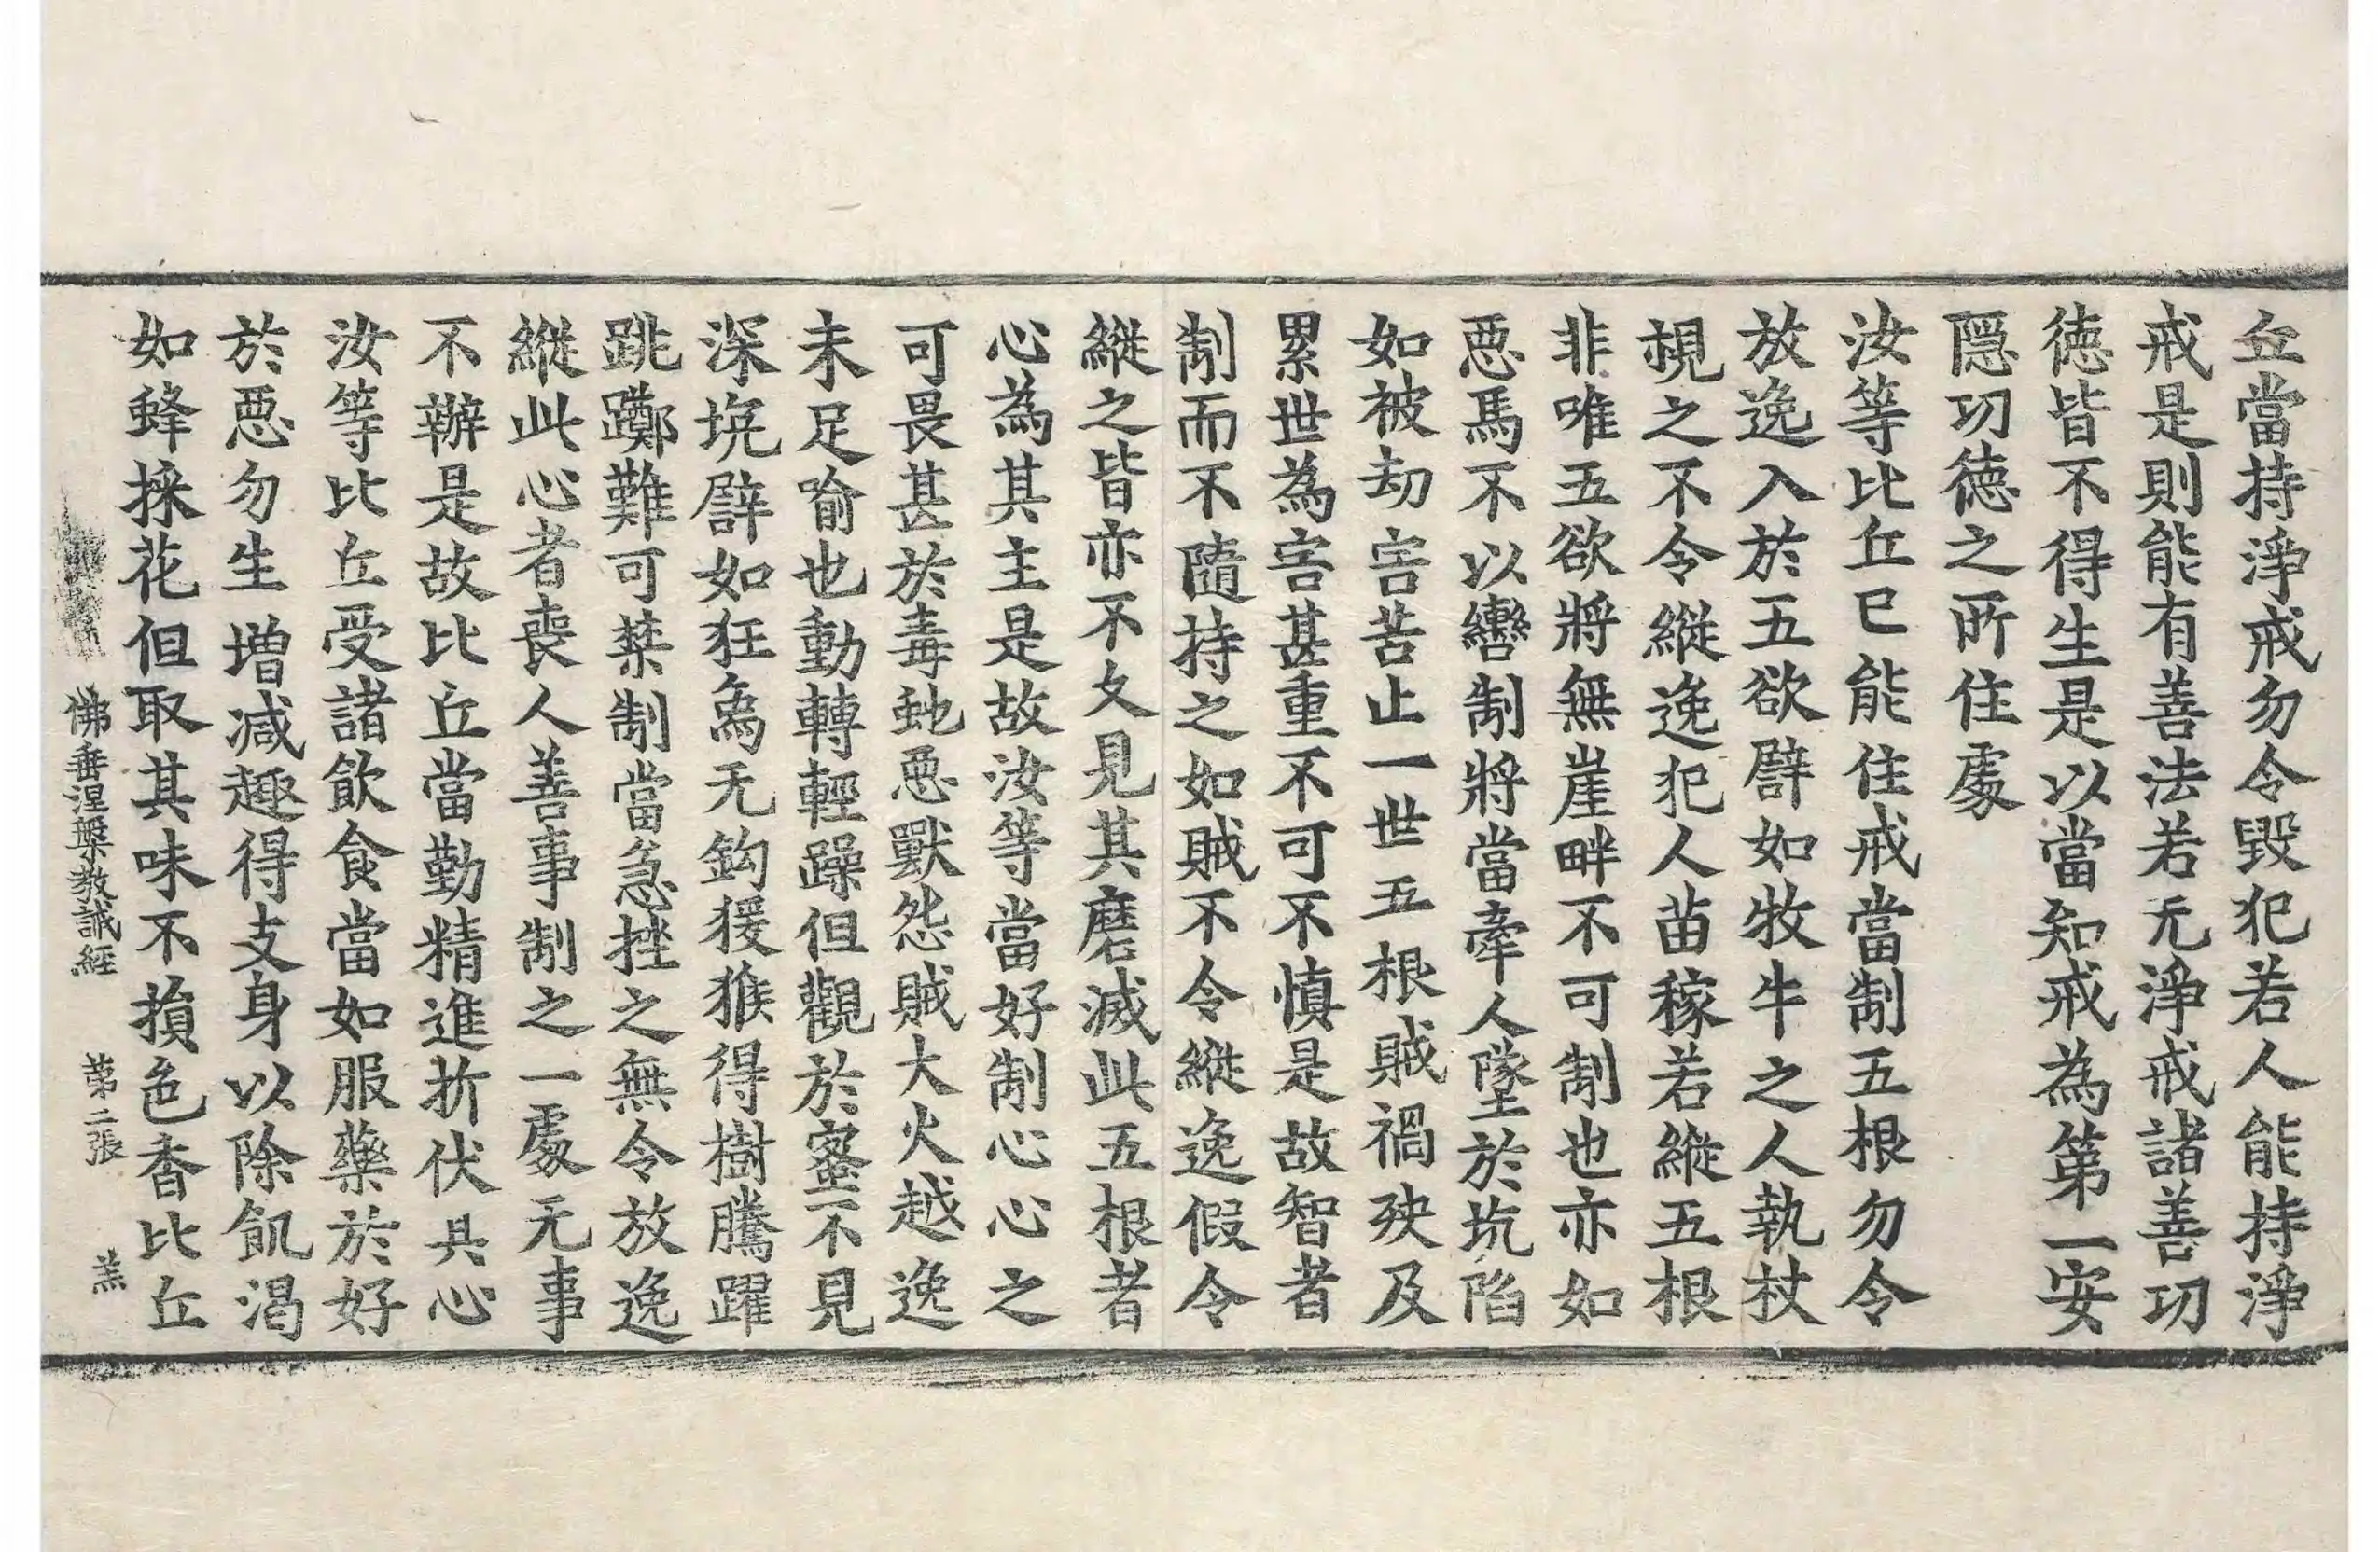 丘當持淨戒勿令毀犯若人能持淨
戒是則能有善法若无淨戒諸善功
德皆不得生是以當知戒為第一安
隱功德之所住處
汝等比丘已能住戒當制五根勿令
放逸入於五欲譬如牧牛之人執杖
視之不令縱逸犯人苗稼若縱五根
非唯五欲將無崖畔不可制也亦如
惡馬不以轡制將當牽人墜於坑陷
如被劫害苦止一世五根賊禍殃及
累世為害甚重不可不慎是故智者
制而不隨持之如賊不令縱逸假令
縱之皆亦不久見其磨滅此五根者
心為其主是故汝等當好制心心之
可畏甚於毒虵惡獸怨賊大火越逸
未足喻也動轉輕躁但觀於蜜不見
深坑譬如狂象无鈎猨猴得樹騰躍
跳躑難可禁制當急挫之無令放逸
縱此心者喪人善事制之一處无事
不辦是故比丘當勤精進折伏其心
汝等比丘受諸飲食當如服藥於好
於惡勿生增減趣得支身以除飢渴
如蜂採花但取其味不損色香比丘
佛垂涅槃教誡經 第二張 羔